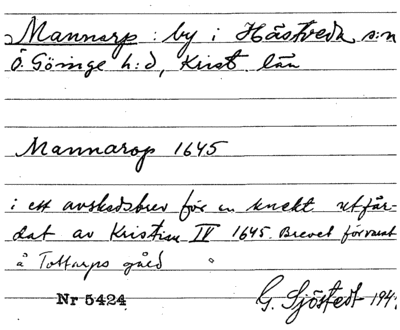 Mannarp : by i Hästveda s:n
Ö. Göinge h:d, Krist. län
Mannarop 1645
i ett avskedsbrev för en knekt utfär-
dat av Kristian IV 1645. Brevet förvarat
å Tottarps gård
Nr 5424
G. Sjöstedt 194